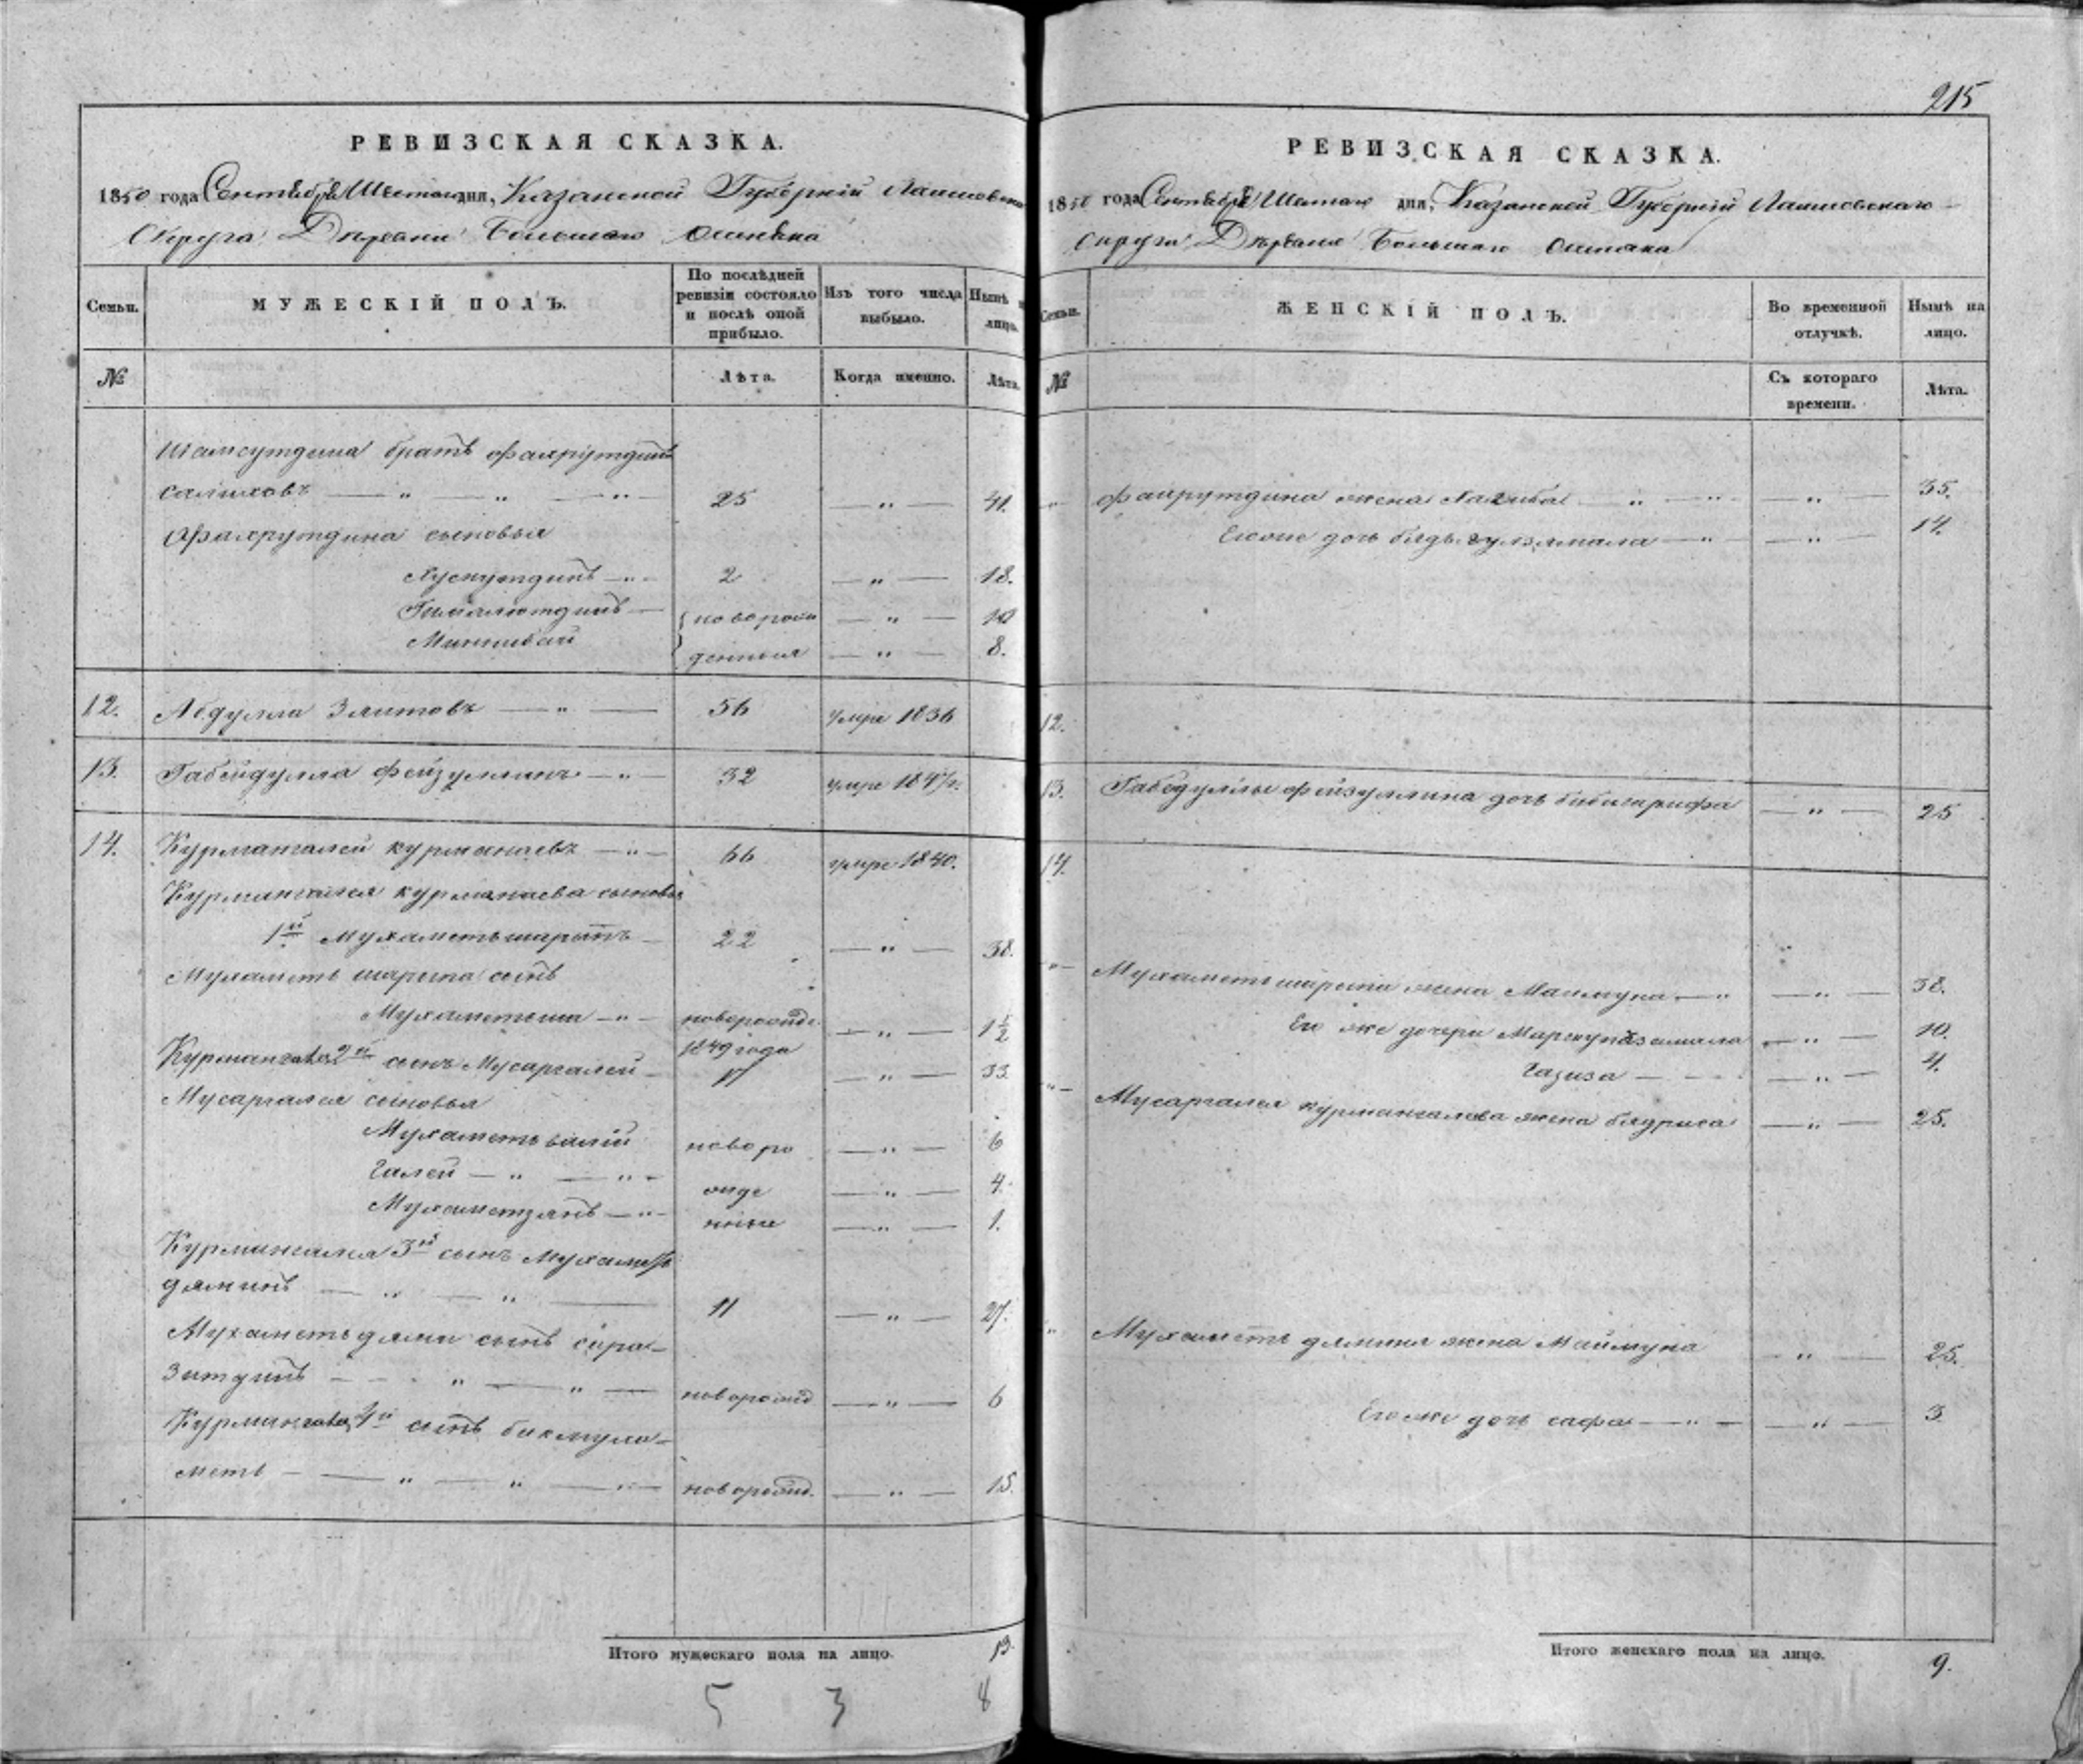 РЕВИЗСКАЯ СКАЗКА.
1850 года Сентября Шестаго дня, Казанской Губерніи Лаишевска
Округа Деревни Большаго Ошняка
Семьи.
МУЖЕСКІЙ ПОЛЪ.
По послѣдней ревизіи состояло и послѣ оной прибыло.
Изъ того числа выбыло.
Нынѣ н лицо.
№
Лѣта.
Когда именно.
Лѣта.
Шамсутдина братъ Фахрутдинъ
Салиховъ — „ — „ — „ 25 — „ — 41.
Фахрутдина сыновья
— „ — 2 — „ — 18.
новорож — „ —
Миннибай денныя — „ — 8.
12. Абдулла Заитовъ — „ — 56 умре 1836
13. Габейдулла Фейзуллинъ — „ — 32 умре 1847г.
14. Курмангалей Курманаевъ — „ — 66 умре 1840.
Курмангалея Курманаева сыновья
1й Мухаметьшарыпъ — 22 — „ — 38.
Мухаметь шарыпа сынъ
Мухаметьша — „ — новорожде. — „ — 1½
1849 года
Курмангалея 2й сынъ Мусаргалей — 17 — „ — 33
Мусаргалея сыновья
Мухаметьвалій новоро — „ — 6
Галей — „ — „ — жде — „ — 4.
Мухаметзянъ — „ — нные — „ — 1.
Курмангалея 3й сынъ Мухаметь
дяминъ — „ — „ — 11 — „ — 27.
Мухаметьдями сынъ Сира-
зитдинъ — „ — „ — новорожд — „ — 6
Курмангалея 4й сынъ Бикмуха-
меть — „ — „ — „ — новорожд. — „ — 15.
Итого мужескаго пола на лицо. 13.
5 3 8
215
РЕВИЗСКАЯ СКАЗКА.
1850 года Сентября Шестаго дня, Казанской Губерніи Лаишевскаго
Округа Деревни Большаго Ошняка
Семьи.
ЖЕНСКІЙ ПОЛЪ.
Во временной отлучкѣ.
Нынѣ на лицо.
№
Съ котораго времени.
Лѣта.
„ Фахрутдина жена — „ — „ — „ — 35.
Его же дочь — „ — „ — 14.
12.
13. Габедуллы Фейзуллина дочь Бибишарифа — „ — 25
14.
„ Мухаметьшарыпа жена Маимуна — „ — „ — 38.
Его же дочери — „ — 10.
Газиза — — — „ — 4.
„ Мусаргалея Курмангалеева жена Бадриса — „ — 25.
„ Мухаметь дямина жена Маймуна — „ — 25.
Его же дочь Сафа — „ — „ — 3
Итого женскаго пола на лицо. 9.